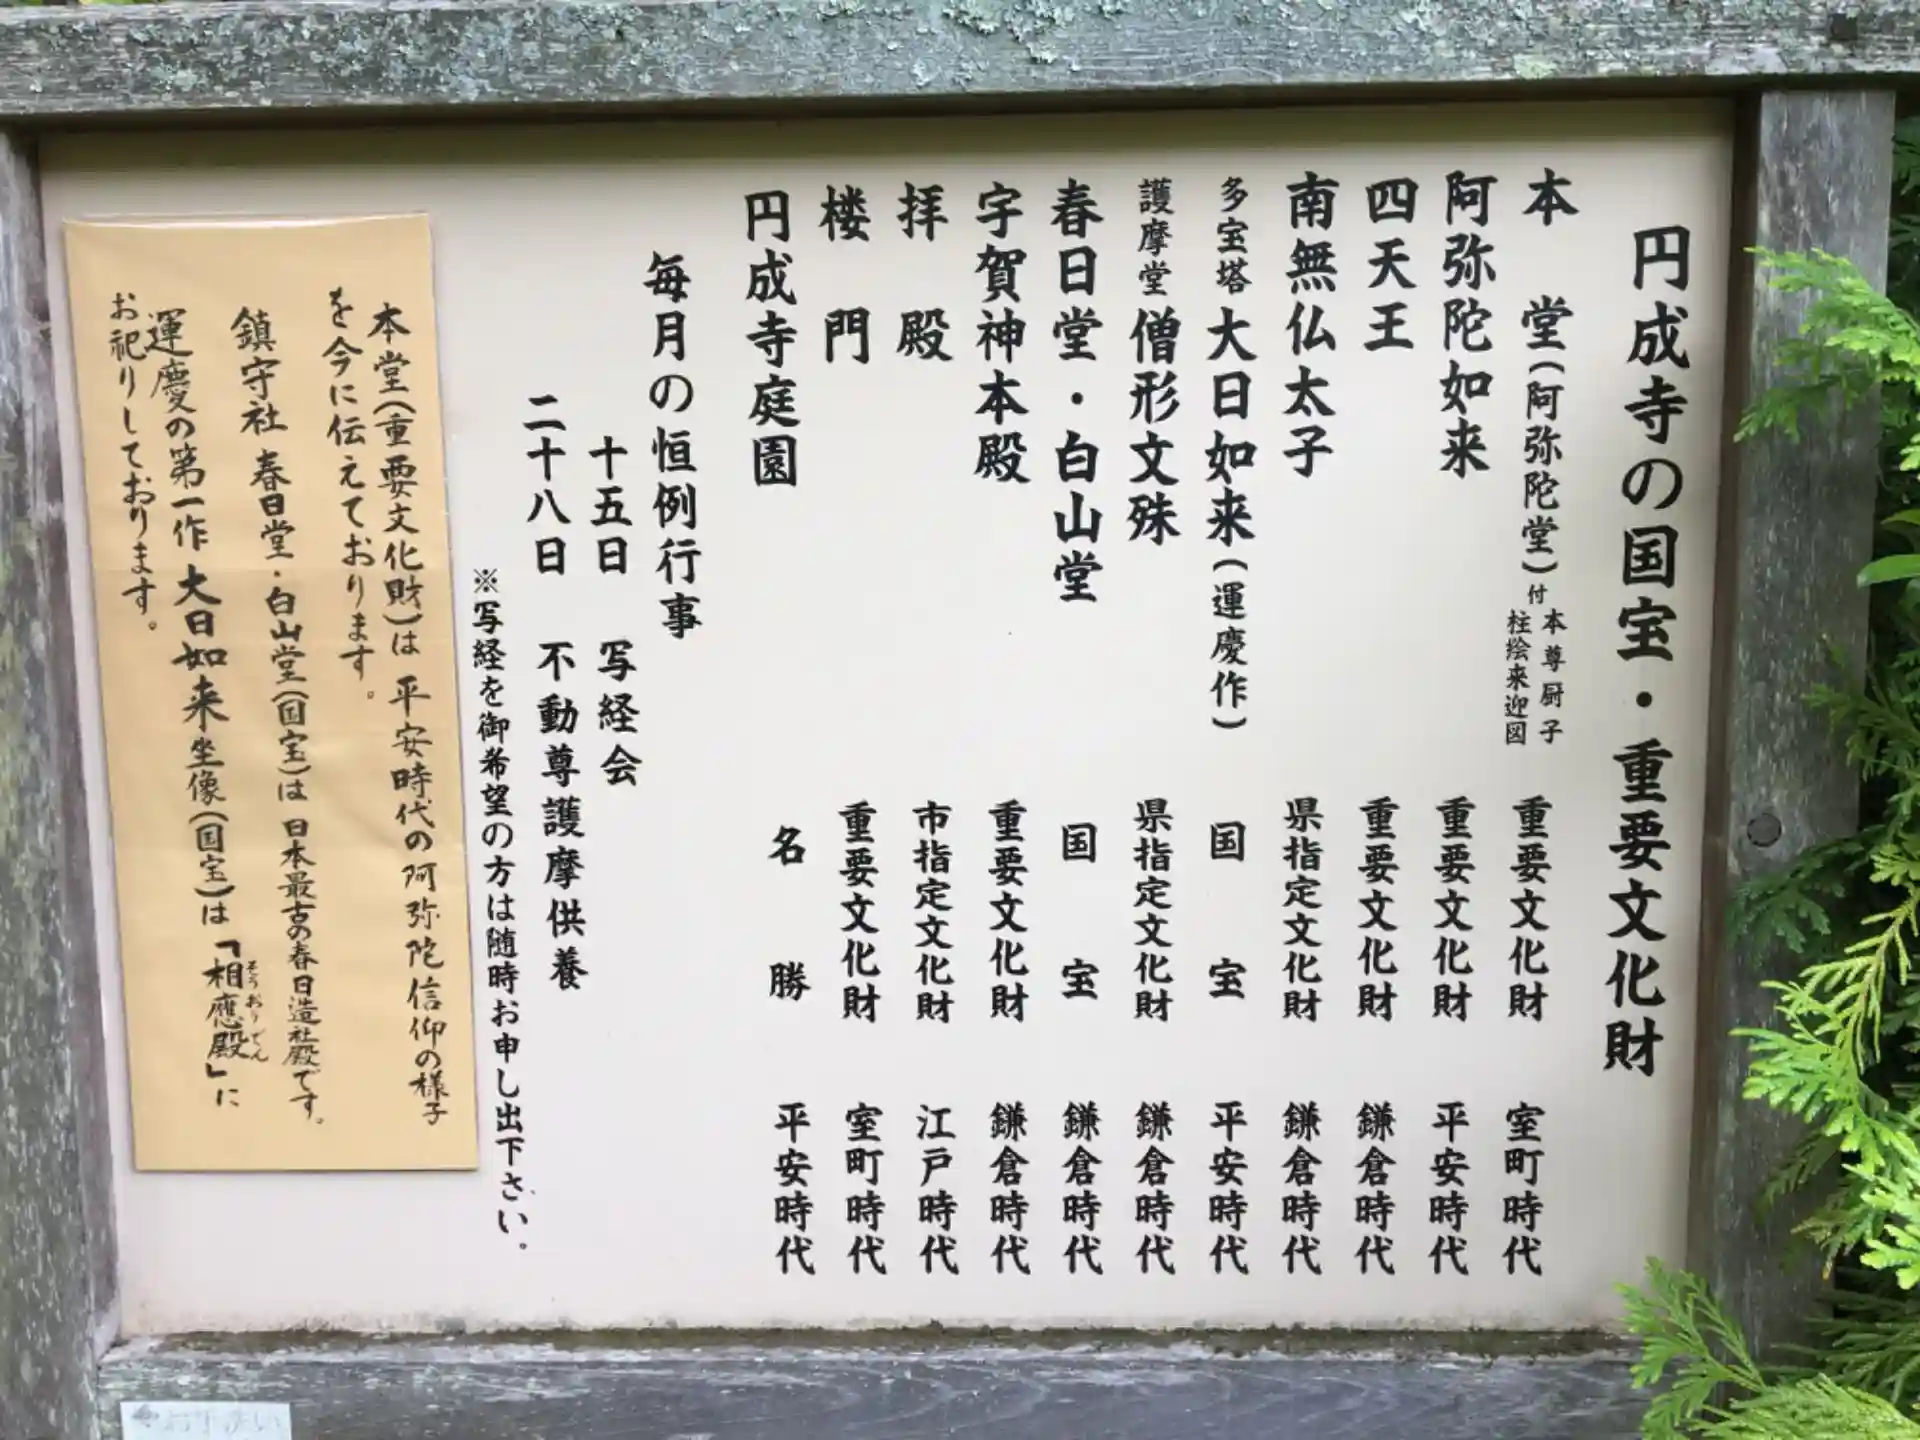 円成寺の国宝・重要文化財
本堂(阿弥陀堂)付 本尊厨子 柱絵来迎図 重要文化財 室町時代
阿弥陀如来 重要文化財 平安時代
四天王 重要文化財 鎌倉時代
南無仏太子 県指定文化財 鎌倉時代
多宝塔 大日如来(運慶作) 国宝 平安時代
護摩堂 僧形文殊 県指定文化財 鎌倉時代
春日堂・白山堂 国宝 鎌倉時代
宇賀神本殿 重要文化財 鎌倉時代
拝殿 市指定文化財 江戸時代
楼門 重要文化財 室町時代
円成寺庭園 名勝 平安時代
毎月の恒例行事
十五日 写経会
二十八日 不動尊護摩供養
※写経を御希望の方は随時お申し出下さい。
本堂(重要文化財)は 平安時代の阿弥陀信仰の様子
を今に伝えております。
鎮守社 春日堂・白山堂(国宝)は 日本最古の春日造社殿です。
運慶の第一作 大日如来坐像(国宝)は「相應殿」に
そうおうでん
お祀りしております。
お手洗い